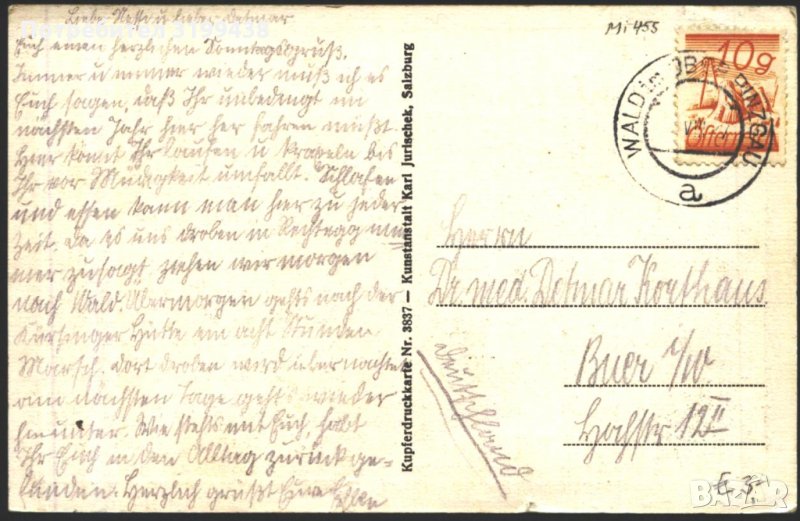 Liebe Netta u lieber Detmar
Euch einen herzlichen Sonntagsgruß.
Immer u immer wieder muß ich es
Euch sagen, daß Ihr unbedingt im
nächsten Jahr hier her fahren müßt.
Hier könnt Ihr laufen u kraxeln bis
Ihr vor Müdigkeit umfallt. Schlafen
und essen kann man hier zu jeder
Zeit. Da es uns droben in nim
mer zusagt, ziehen wir morgen
nach Wald. Übermorgen gehts nach der
Kürsinger Hütte ein acht Stunden
Marsch. Dort droben wird übernachtet
am nächsten Tage gehts wieder
hinunter. Wie stehts mit Euch, habt
Ihr Euch in den Alltag zurück ge-
funden. Herzlich grüßt Eure
Kupferdruckkarte Nr. 3837 — Kunstanstalt Karl Jurischek, Salzburg
Mi 455
10g
Österreich
WALD IM OBERPINZGAU
a
Herrn
Dr. med. Detmar Korthaus
Buer i/W
Hochstr 12II
Deutschland
Потребител 3199438
BAZAR